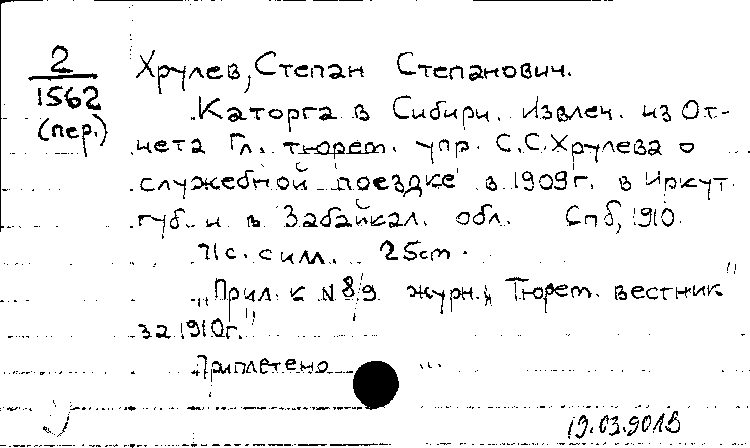 2
1562
(пер.)
Хрулев, Степан Степанович.
Каторга в Сибири. Извлеч. из От-
чета Гл. тюрем. упр. С.С.Хрулева о
служебной поездке в 1909г. в Иркут.
губ. и в Забайкал. обл. Спб, 1910.
с илл. 25cm.
„Прил. к N 8/9 журн. „Тюрем. вестник"
за 1910г."
Приплетено